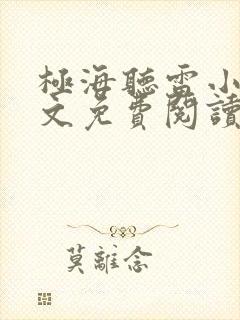 極海聽雷小
文免費閱讀
莫離念